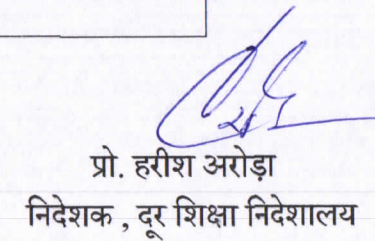 प्रो. हरीश अरोड़ा
निदेशक , दूर शिक्षा निदेशालय